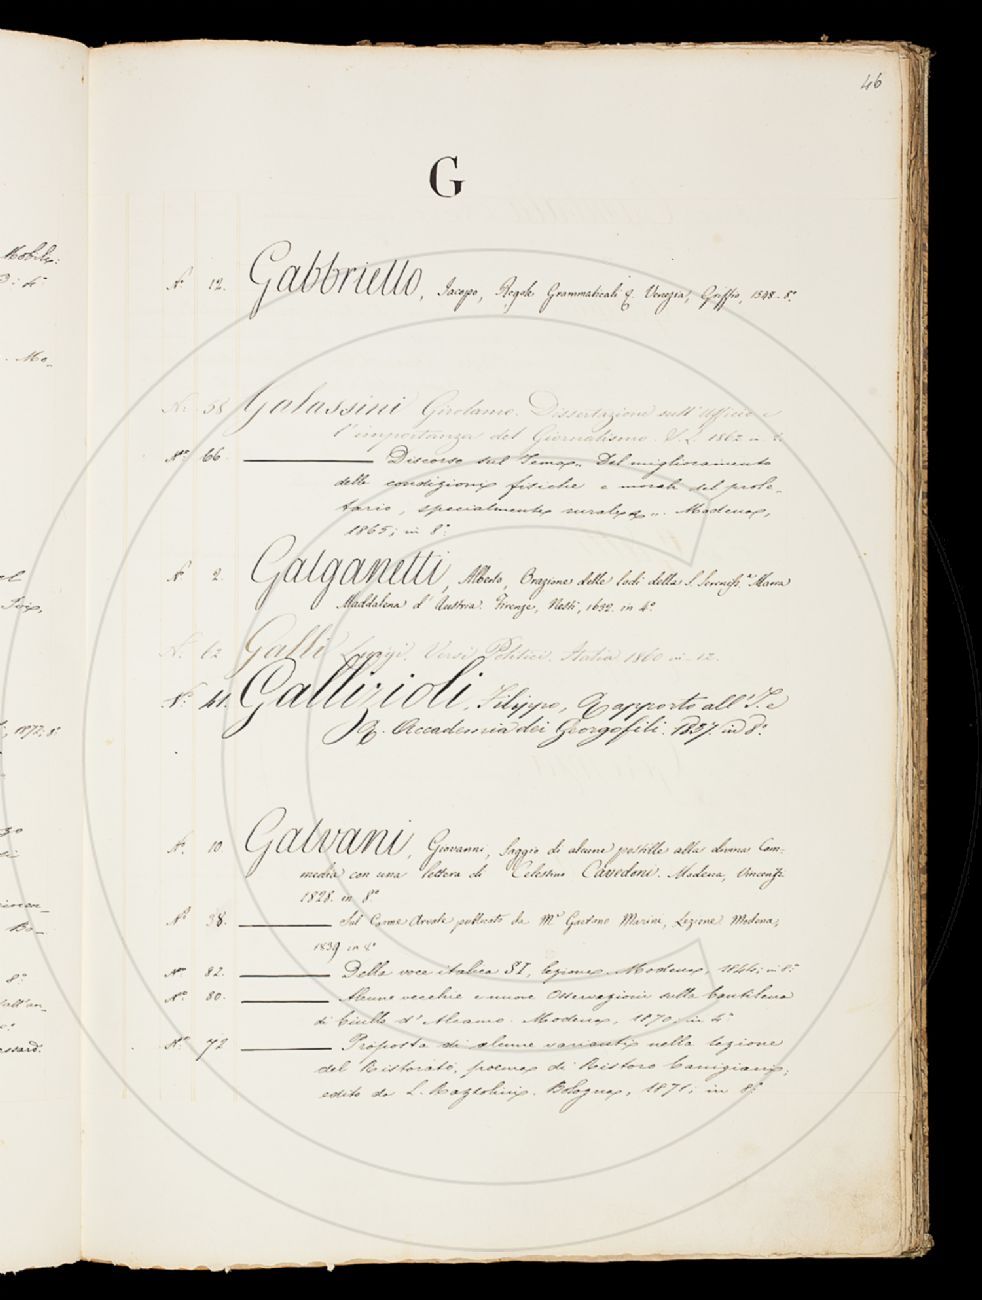 46
G
N.° 12. Gabbriello, Iacopo, Regole Grammaticali &. Venezia, Griffio, 1548. 8.°
N.° 58 Galassini Girolamo. Dissertazione sull'Ufficio e
l'importanza del Giornalismo. S.L. 1862 in 8.
N.° 66. Discorso sul Tema „ Del miglioramento
delle condizioni fisiche e morali del prole-
tario, specialmente rurale &. „. Modena,
1865; in 8.°
N.° 2. Galganetti, Alberto, Orazione delle lodi della S. Sereniss.ª Maria
Maddalena d'Austria. Firenze, Nesti, 1632. in 4.°
N.° 62 Galli Luigi. Versi Politici. Italia 1860 in 12.
N.° 41. Gallizioli, Filippo, Rapporto all'I. e
R. Accademia dei Georgofili. 1837. in 8.°
N.° 10 Galvani, Giovanni, Saggio di alcune postille alla divina Com-
media con una lettera di Celestino Cavedoni. Modena, Vincenzi
1828. in 8.°
N.° 38. Sul Carme Arvale pubblicato da M.r Gaetano Marini, Lezione Modena,
1839 in 4.°
N.° 82. Della voce italica SI, lezione. Modena, 1844; in 8.°
N.° 80. Alcune vecchie e nuove Osservazioni sulla Cantilena
di Ciullo d'Alcamo. Modena, 1870. in 4.°
N.° 72 Proposta di alcune varianti nella lezione
del Ristorato, poema di Ristoro Canigiani,
edito da L. Razzolini. Bologna, 1871; in 8.°